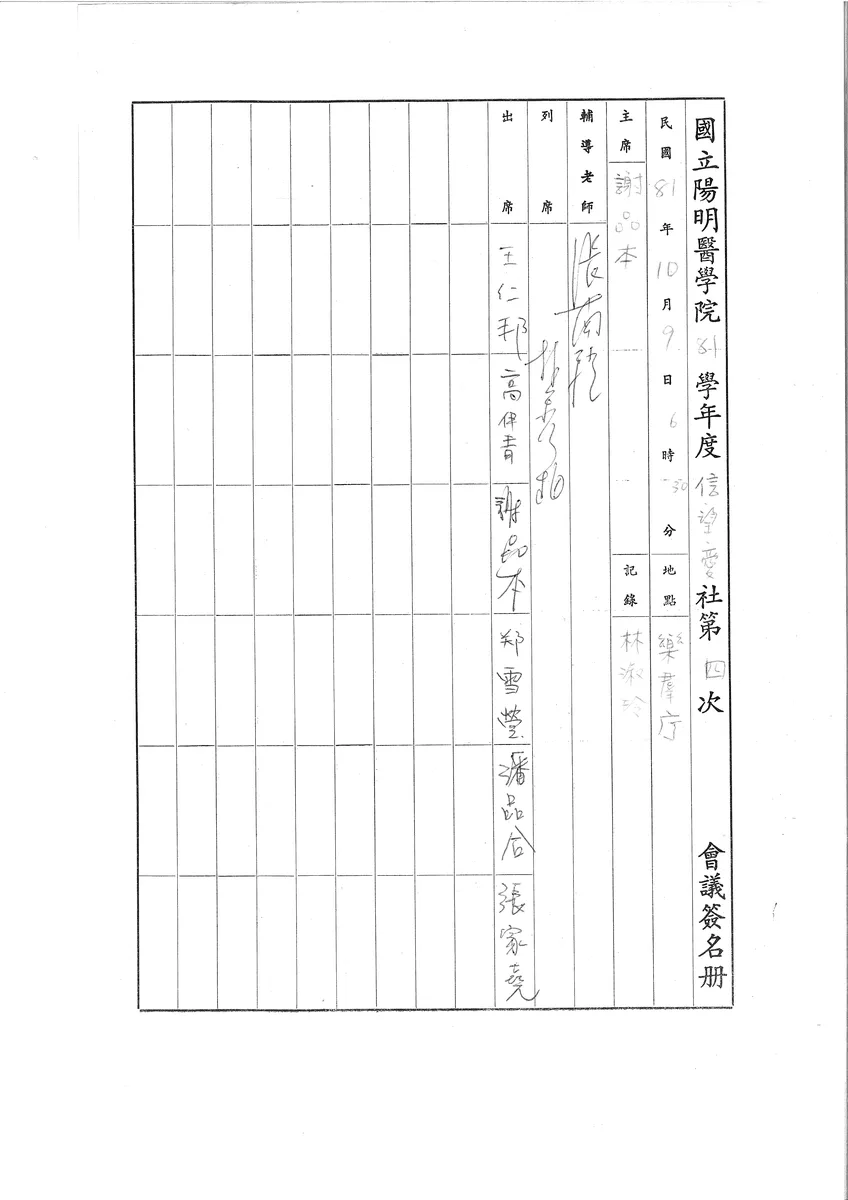 國立陽明醫學院 81 學年度 信望愛 社第 四 次 會議簽名冊
民國 81 年 10 月 9 日 6 時 30 分 地點 樂群庁
主席 謝品本 記錄 林淑玲
輔導老師 張
列席 林
出席 王仁邦 高伊青 謝品本 郑雪瑩 潘品合 張家堯